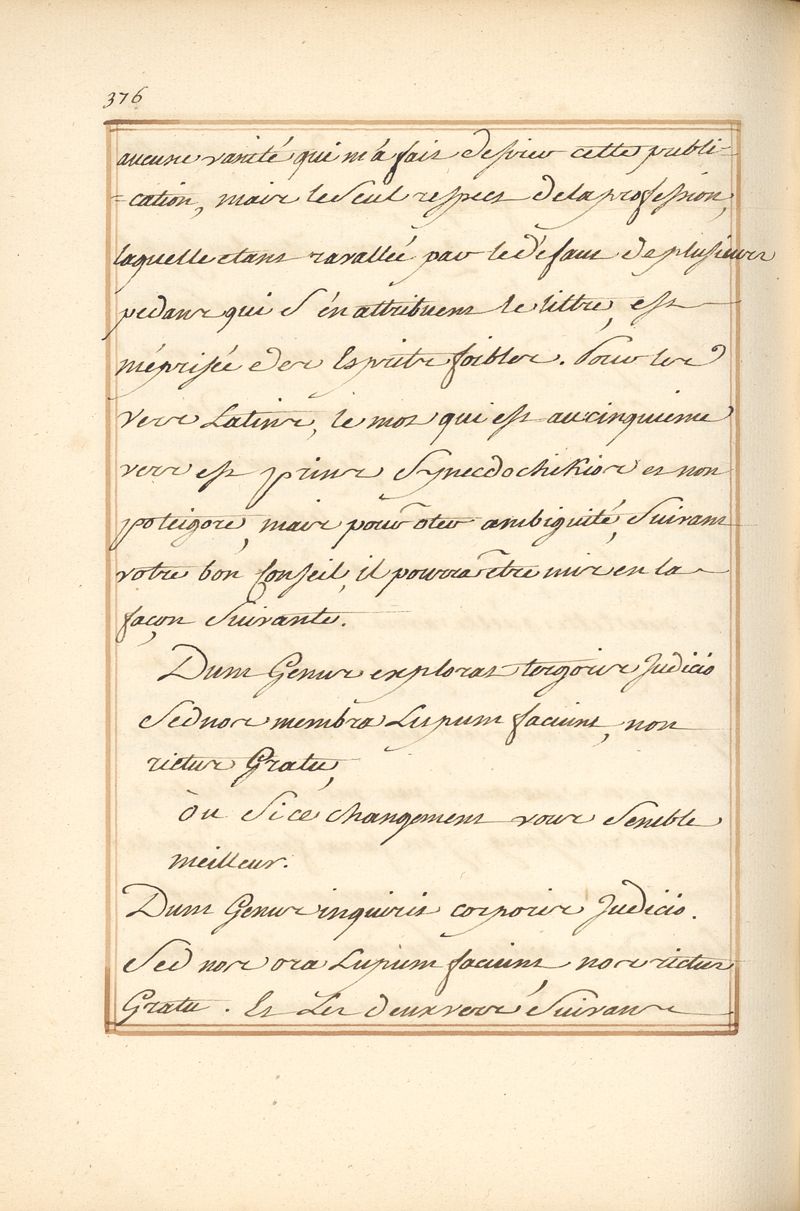 376
aucune vanité qui m'a fait desirer cette publi=
=cation, mais le Seul respect de la profession,
laquelle etant ravallée par le défaut de plusieurs
pedans qui S'én attribuent le tittre, est
méprisée des Esprits foibles. Pour les
vers Latins, le mot qui est au cinquieme
vers est prins Synecdochikios et non
poteigore, mais pour ôter ambiguité, Suivant
votre bon Conseil, il pourra être mis en la
façon Suivante.
Dum Genus exploras tergoris Judicio
Sed nos membra Lupum faciunt, non
rictus Gratu,
Ou Si ce changement vous Semble
meilleur.
Dum Genus inquiris corporis Judicio.
Sed nos ora Lupum faciunt nos rictus
Gratu. Et Les deux vers Suivans